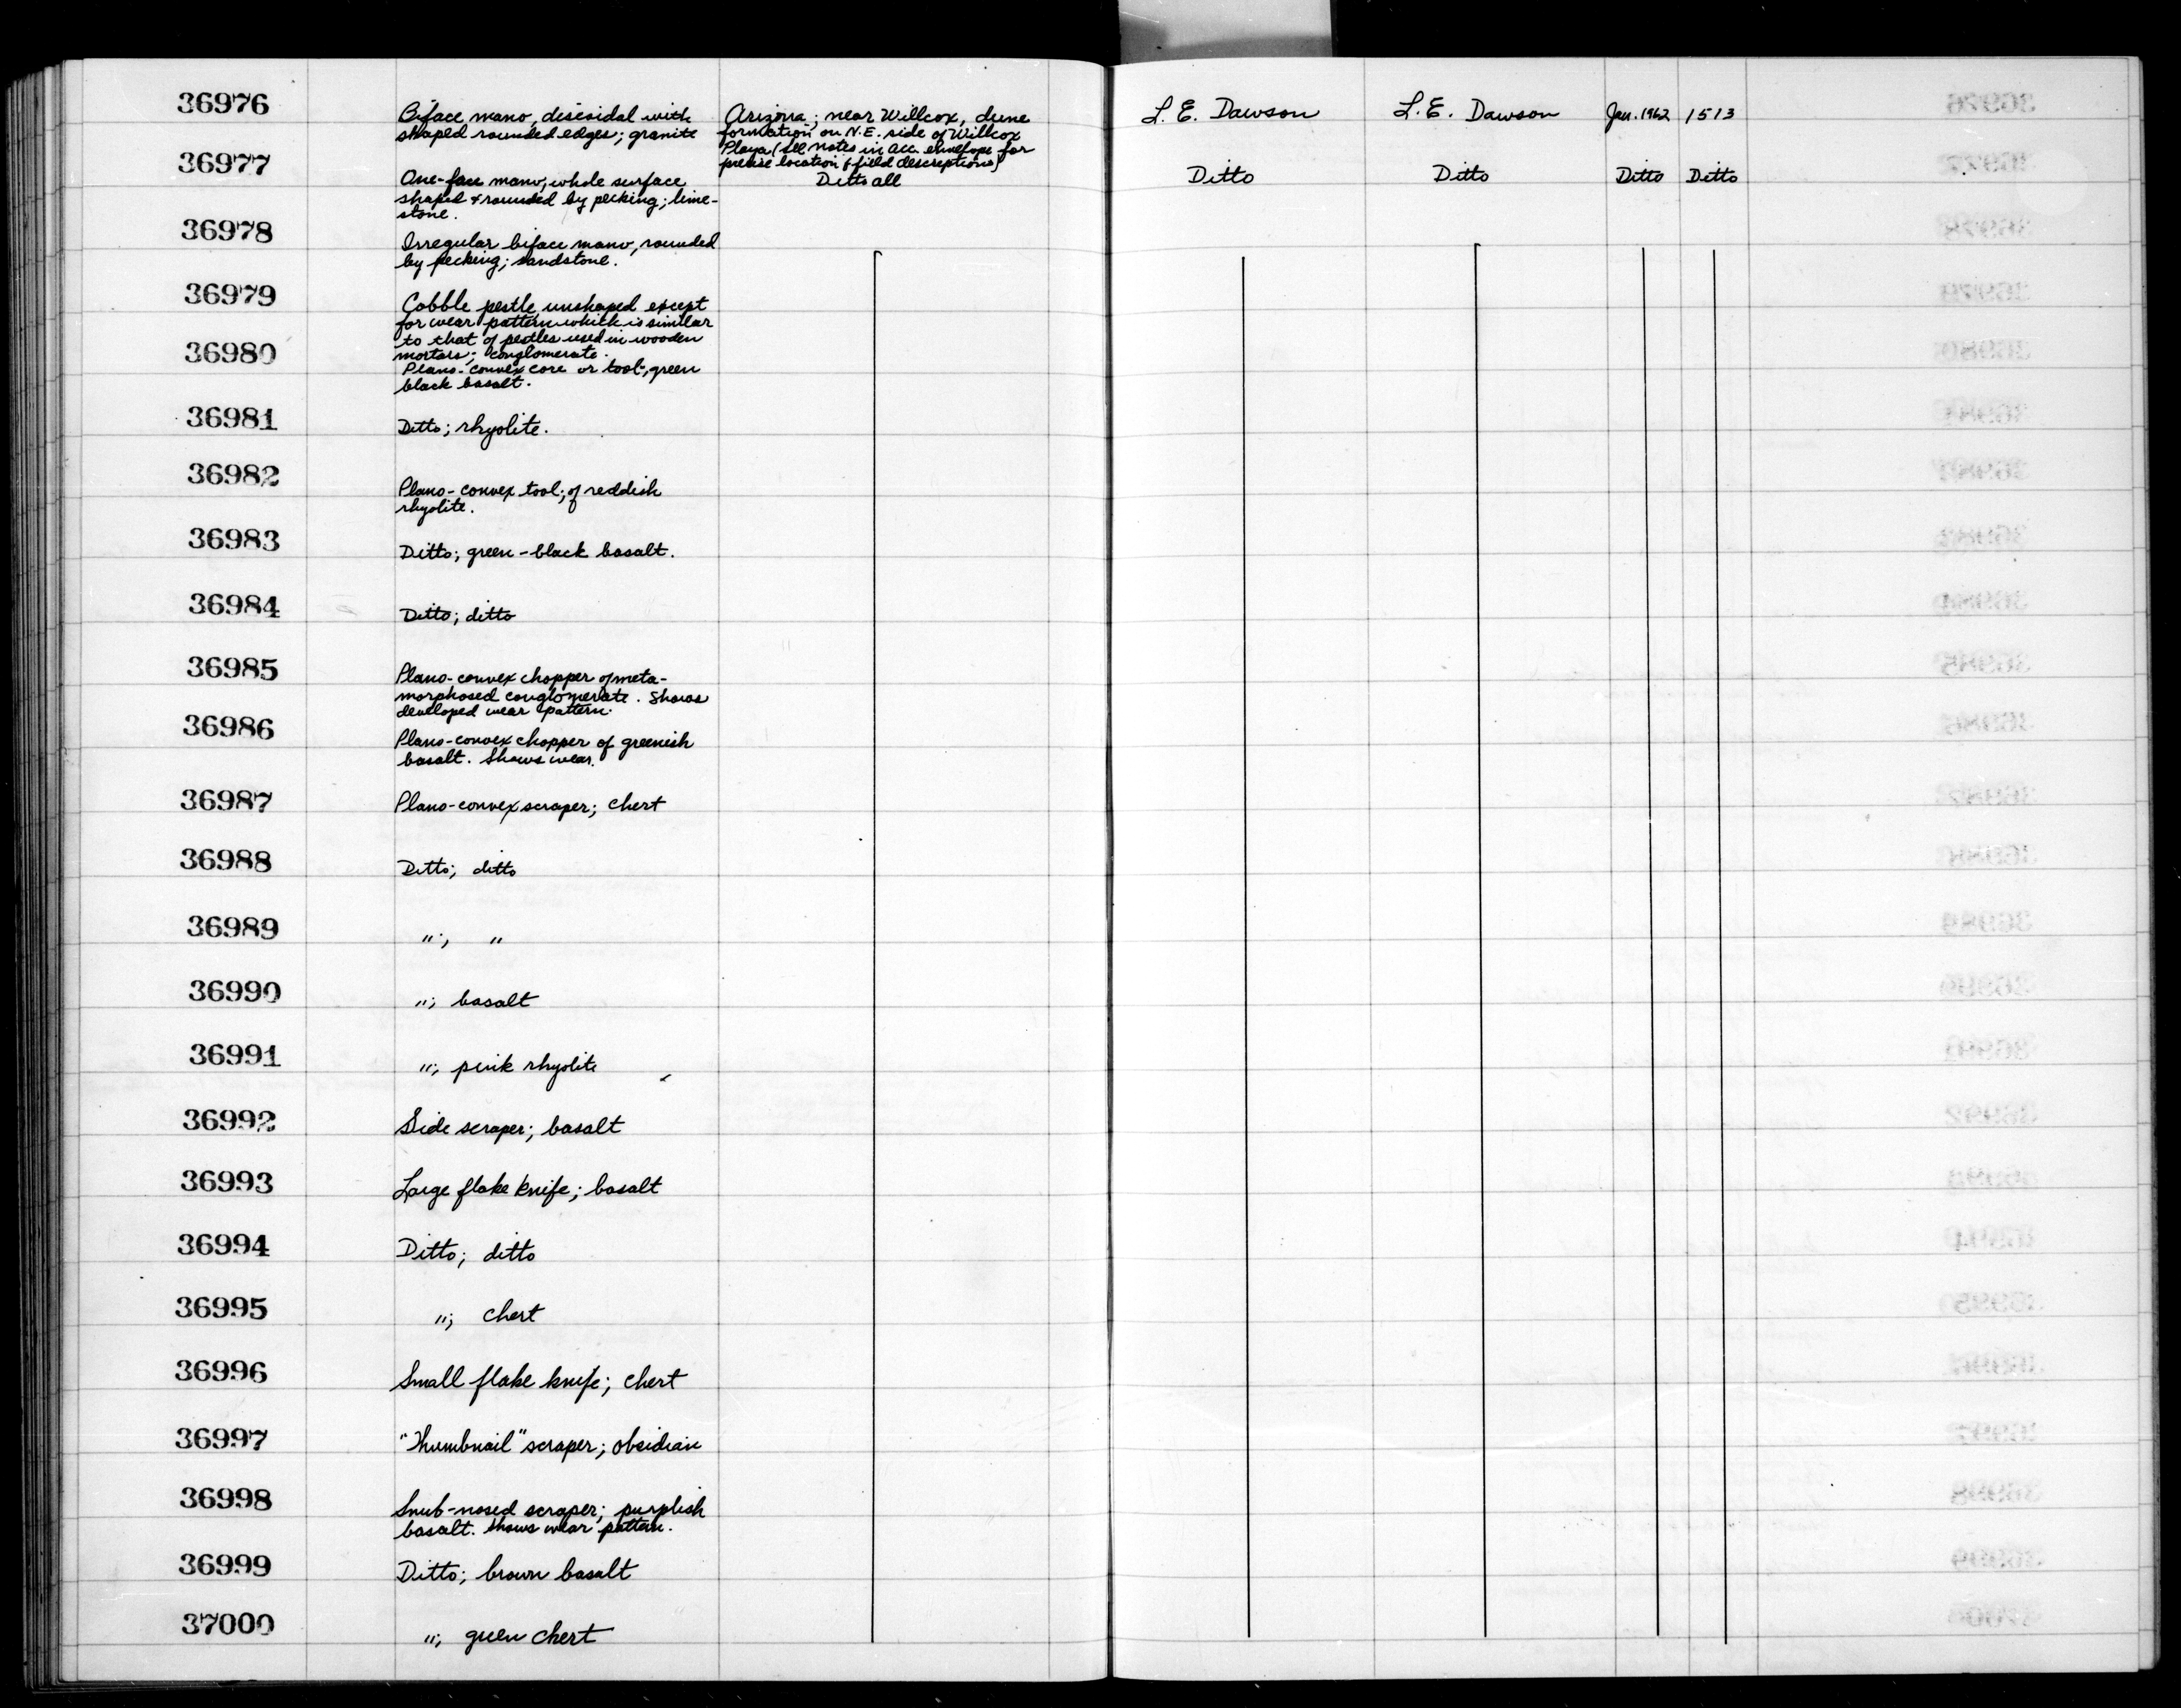 36976
Biface mano, discoidal with
shaped rounded edges; granite
Arizona; near Willcox, dune
formation on N.E. side of Willcox
Playa (see notes in acc. envelope for
precise location & field descriptions)
L. E. Dawson
L. E. Dawson
Jan. 1962
1513
36977
One-face mano, whole surface
shaped & rounded by pecking; lime-
stone.
Ditto all
Ditto
Ditto
Ditto
Ditto
36978
Irregular biface mano, rounded
by pecking; sandstone.
36979
Cobble pestle, unshaped except
for wear pattern which is similar
to that of pestles used in wooden
mortars; conglomerate.
36980
Plano-convex core or tool; green
black basalt.
36981
Ditto; rhyolite.
36982
Plano-convex tool; of reddish
rhyolite.
36983
Ditto; green-black basalt.
36984
Ditto; ditto
36985
Plano-convex chopper of meta-
morphosed conglomerate. Shows
developed wear pattern.
36986
Plano-convex chopper of greenish
basalt. Shows wear.
36987
Plano-convex scraper; chert
36988
Ditto; ditto
36989
"; "
36990
"; basalt
36991
"; pink rhyolite
36992
Side scraper; basalt
36993
Large flake knife; basalt
36994
Ditto; ditto
36995
"; chert
36996
Small flake knife; chert
36997
"Thumbnail" scraper; obsidian
36998
Snub-nosed scraper; purplish
basalt. Shows wear pattern.
36999
Ditto; brown basalt
37000
"; green chert